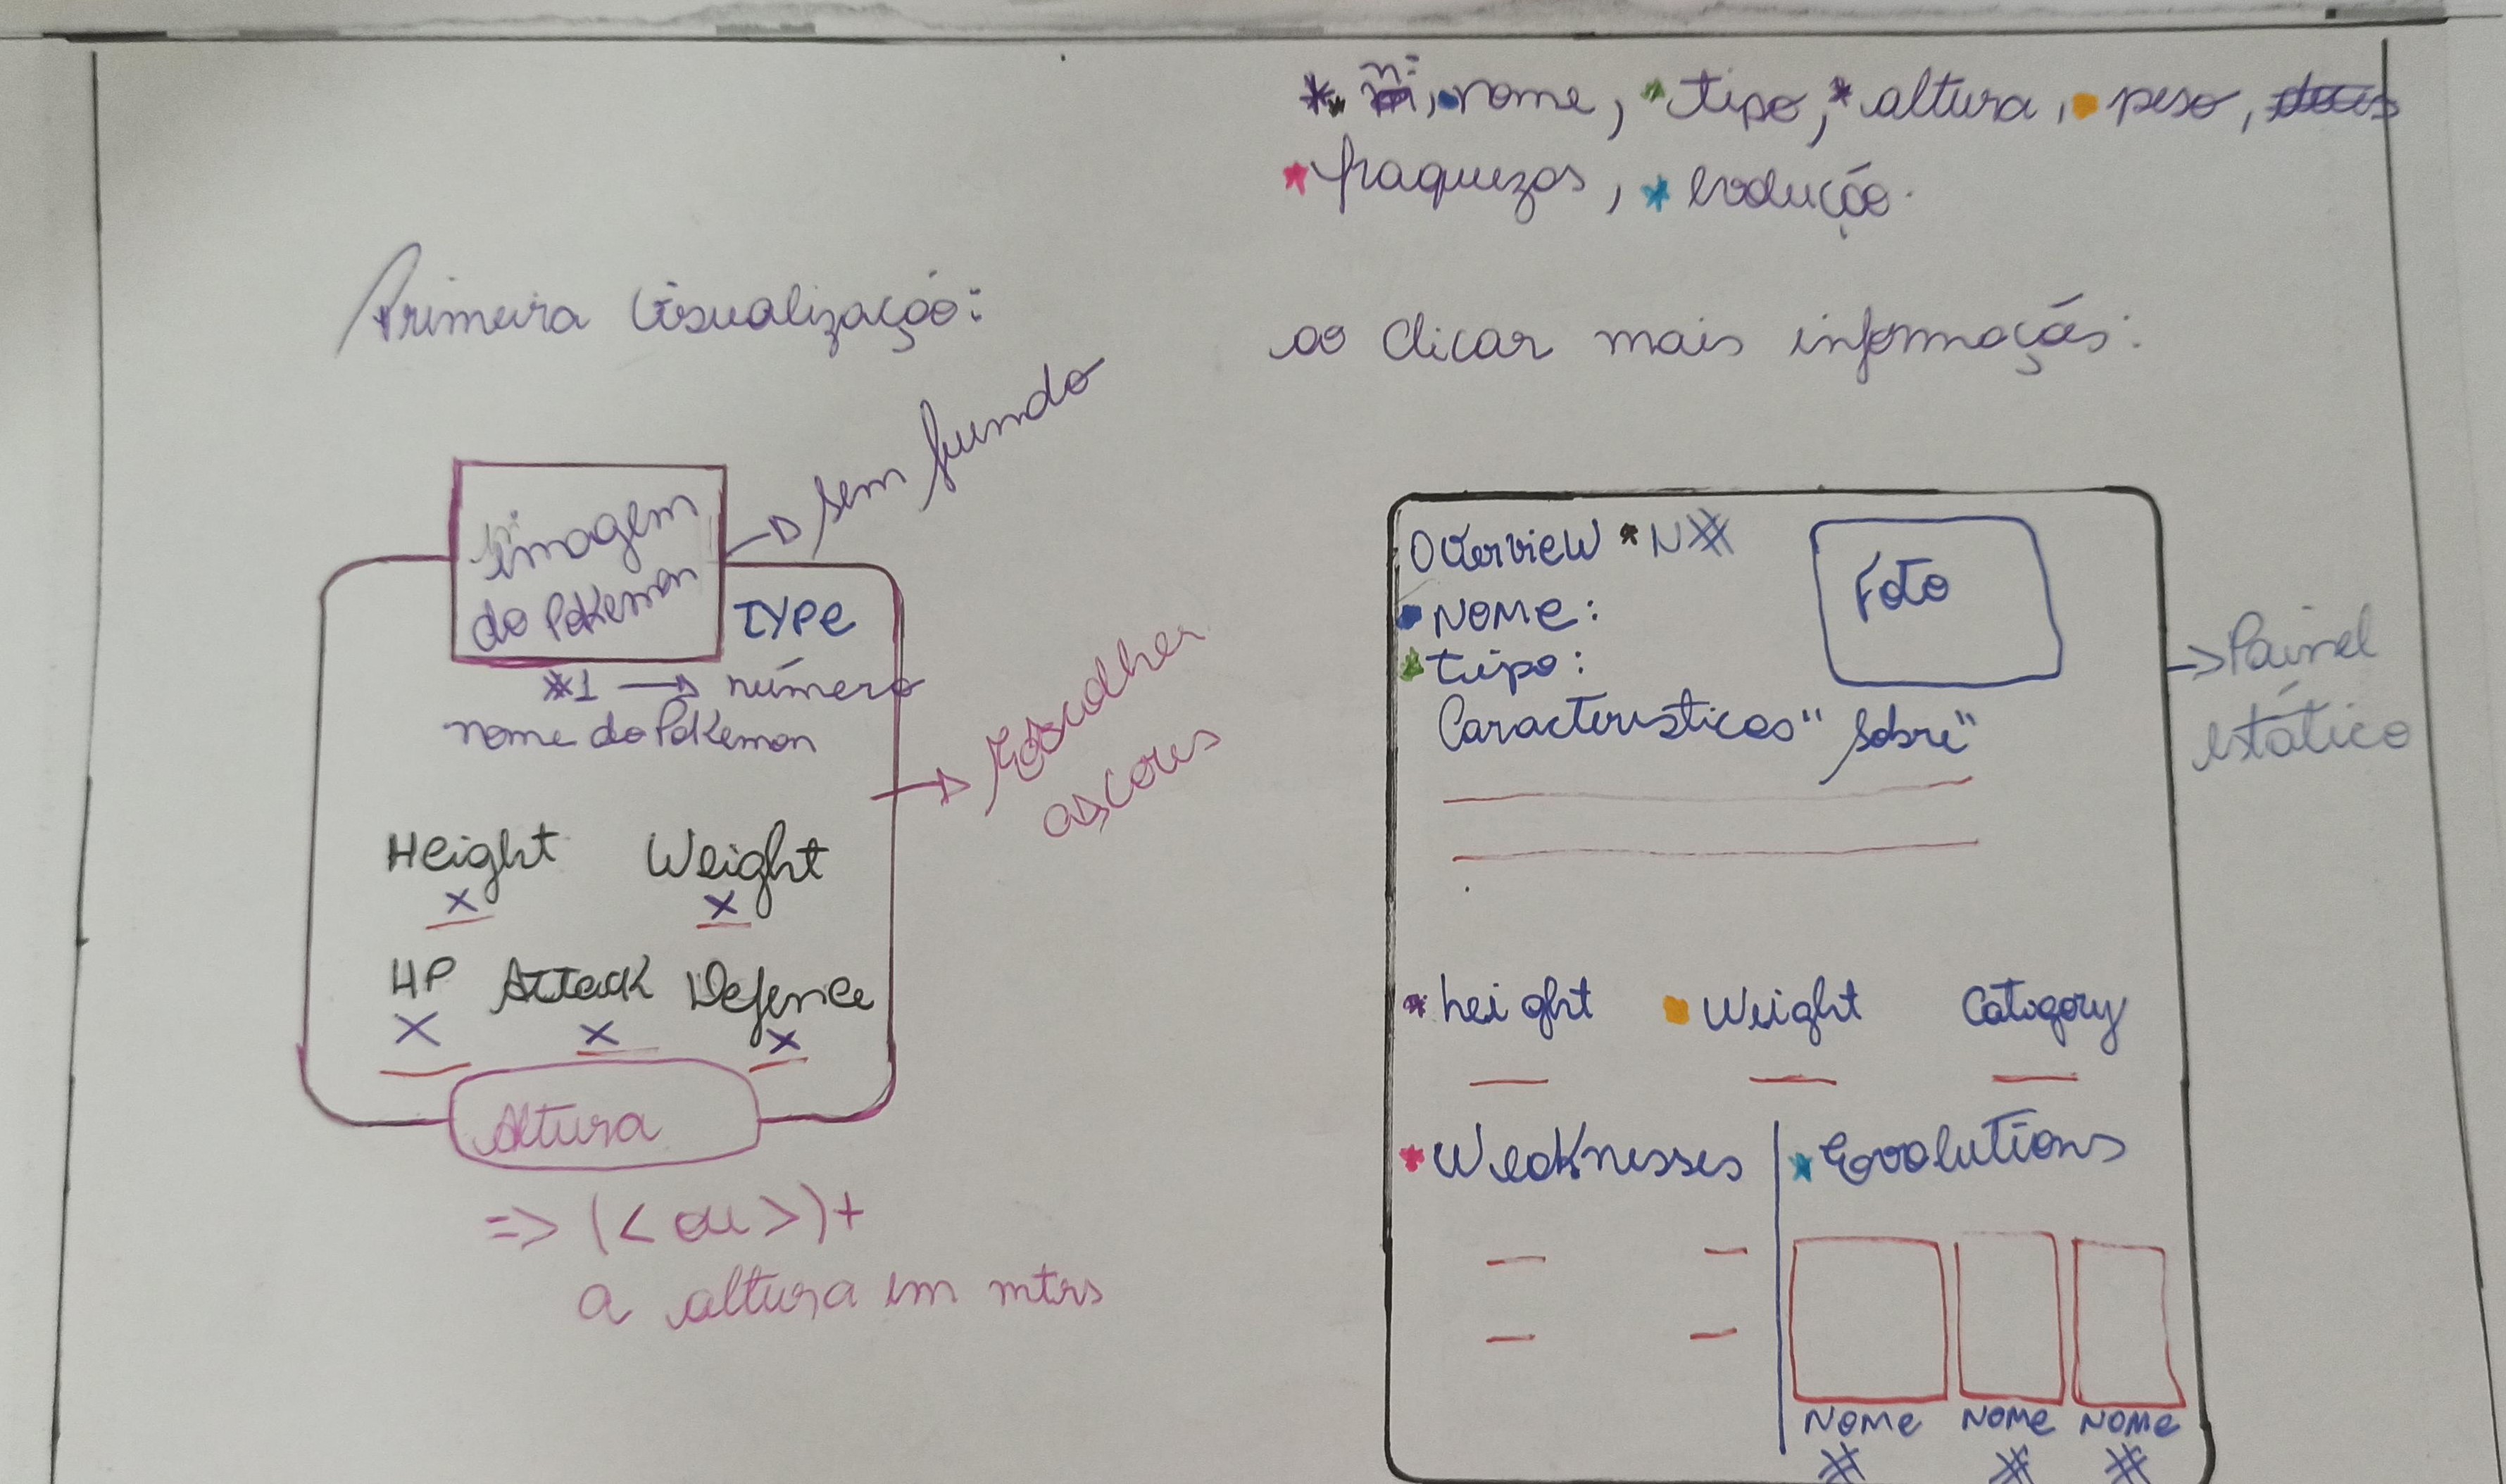 * nº, nome, * tipo, * altura, peso,
* fraquezas, * evolução.
Primeira Visualização:
ao clicar mais informações:
Imagem
do Pokemon
→ sem fundo
TYPE
#1 → número
nome do Pokemon
→ Escolher
as cores
Height Weight
x x
HP Attack Defence
x x x
Altura
=> (< ou >) +
a altura em mtrs
Overview * N#
Foto
Nome:
tipo:
Características "Sobre"
→ Painel
estático
* height Weight Category
* Weaknesses * Evolutions
Nome Nome Nome
# # #